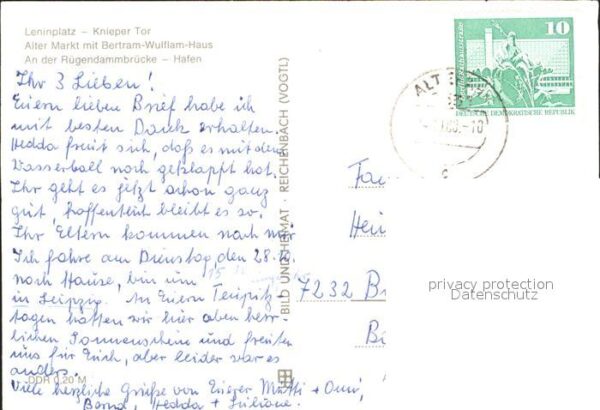 Leninplatz – Knieper Tor
Alter Markt mit Bertram-Wulflam-Haus
An der Rügendammbrücke – Hafen
Ihr 3 Lieben!
Euern lieben Brief habe ich
mit besten Dank erhalten.
Hedda freut sich, daß es mit dem
Wasserball noch geklappt hat.
Ihr geht es jetzt schon ganz
gut, hoffentlich bleibt es so.
Ihr Eltern kommen noch mal
Ich fahre am Dienstag, den 28.10.
nach Hause, bin um 15
in Leipzig. An Euern
tagen hatten wir hier aben herr-
lichen Sonnenschein und freuten
uns für Euch, aber leider war es
anders.
Viele herzliche Grüße von Eurer Mutti + Omi,
Bernd, Hedda + Liliane.
DDR 0,20 M
BILD UND HEIMAT · REICHENBACH (VOGTL)
10
DEUTSCHE DEMOKRATISCHE REPUBLIK
ALT
Fa
Hei
7232 B
B
privacy protection
Datenschutz